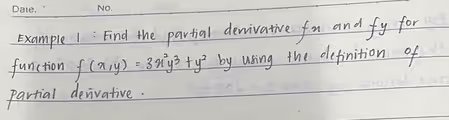 Date. No.
Example 1 : Find the partial derivative fx and fy for
function f(x,y) = 3x²y³ + y² by using the definition of
partial derivative.